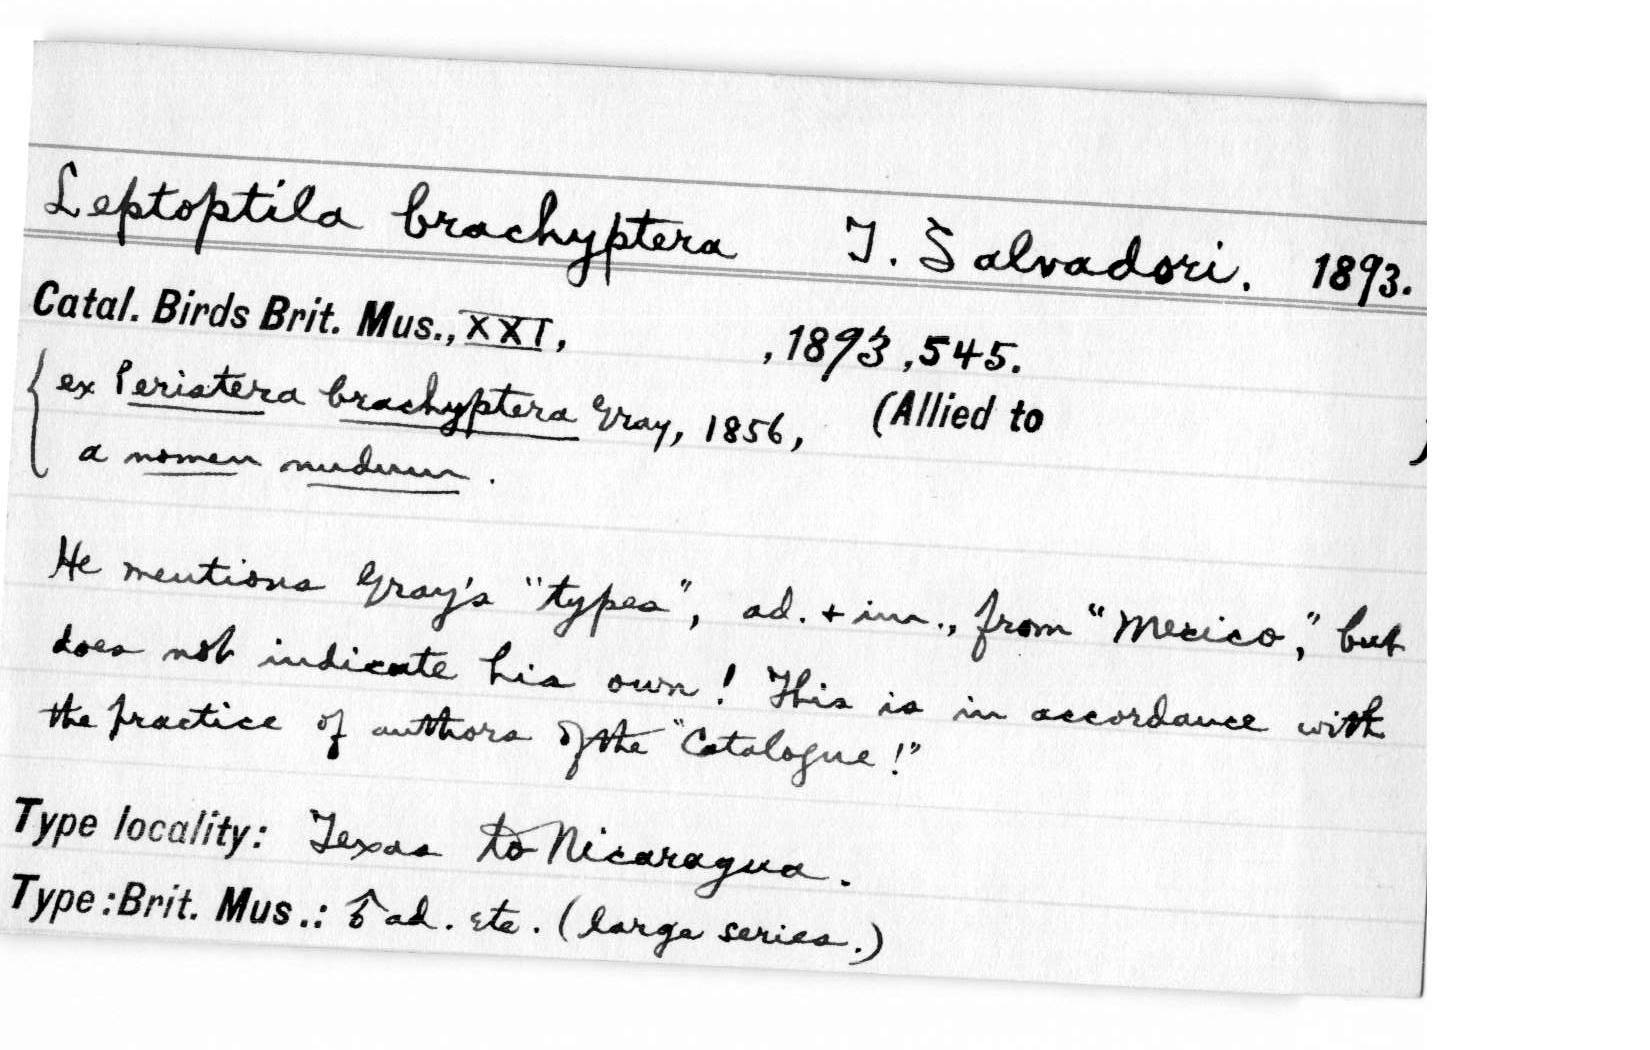 Leptoptila brachyptera T. Salvadori. 1893.
Catal. Birds Brit. Mus., XXI, , 1893, 545.
{ ex Peristera brachyptera Gray, 1856, (Allied to )
a nomen nudum.
He mentions Gray's "types", ad. + imm., from "Mexico," but
does not indicate his own! This is in accordance with
the practice of authors of the "Catalogue!"
Type locality: Texas to Nicaragua.
Type: Brit. Mus.: ♂ ad. etc. (large series.)